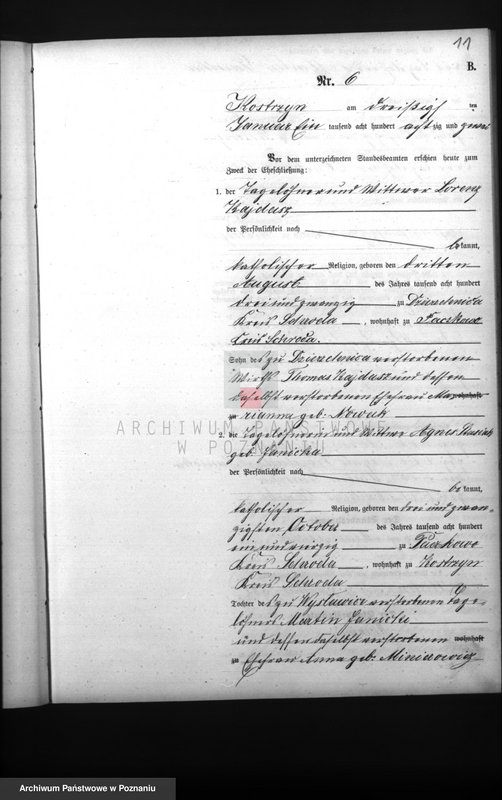 11
B.
Nr. 6
Kostrzyn am dreißigsten
Januar Ein tausend acht hundert acht zig und zwei
Vor dem unterzeichneten Standesbeamten erschien heute zum
Zweck der Eheschließung:
1. der Tagelöhner und Wittwer Lorenz
Kajdasz
der Persönlichkeit nach
bekannt,
katholischer Religion, geboren den dritten
August des Jahres tausend acht hundert
drei und zwanzig zu
Kreis Schroda, wohnhaft zu Paczkowo
Kreis Schroda.
Sohn des zu verstorbenen
Wirths Thomas Kajdasz und dessen
daselbst verstorbenen Ehefrau Ma wohnhaft
zu rianna geb. Nowak
ARCHIWUM PAŃSTWOWE
W POZNANIU
2. die Tagelöhnerin und Wittwe Agnes
geb. Janicka
der Persönlichkeit nach
bekannt,
katholischer Religion, geboren den drei und zwan-
zigsten October des Jahres tausend acht hundert
ein und vierzig zu Paczkowo
Kreis Schroda, wohnhaft zu Kostrzyn
Kreis Schroda
Tochter des zu Wysławice verstorbenen Tage-
löhners Martin Janicki
und dessen daselbst verstorbenen wohnhaft
zu Ehefrau Anna geb.
Archiwum Państwowe w Poznaniu